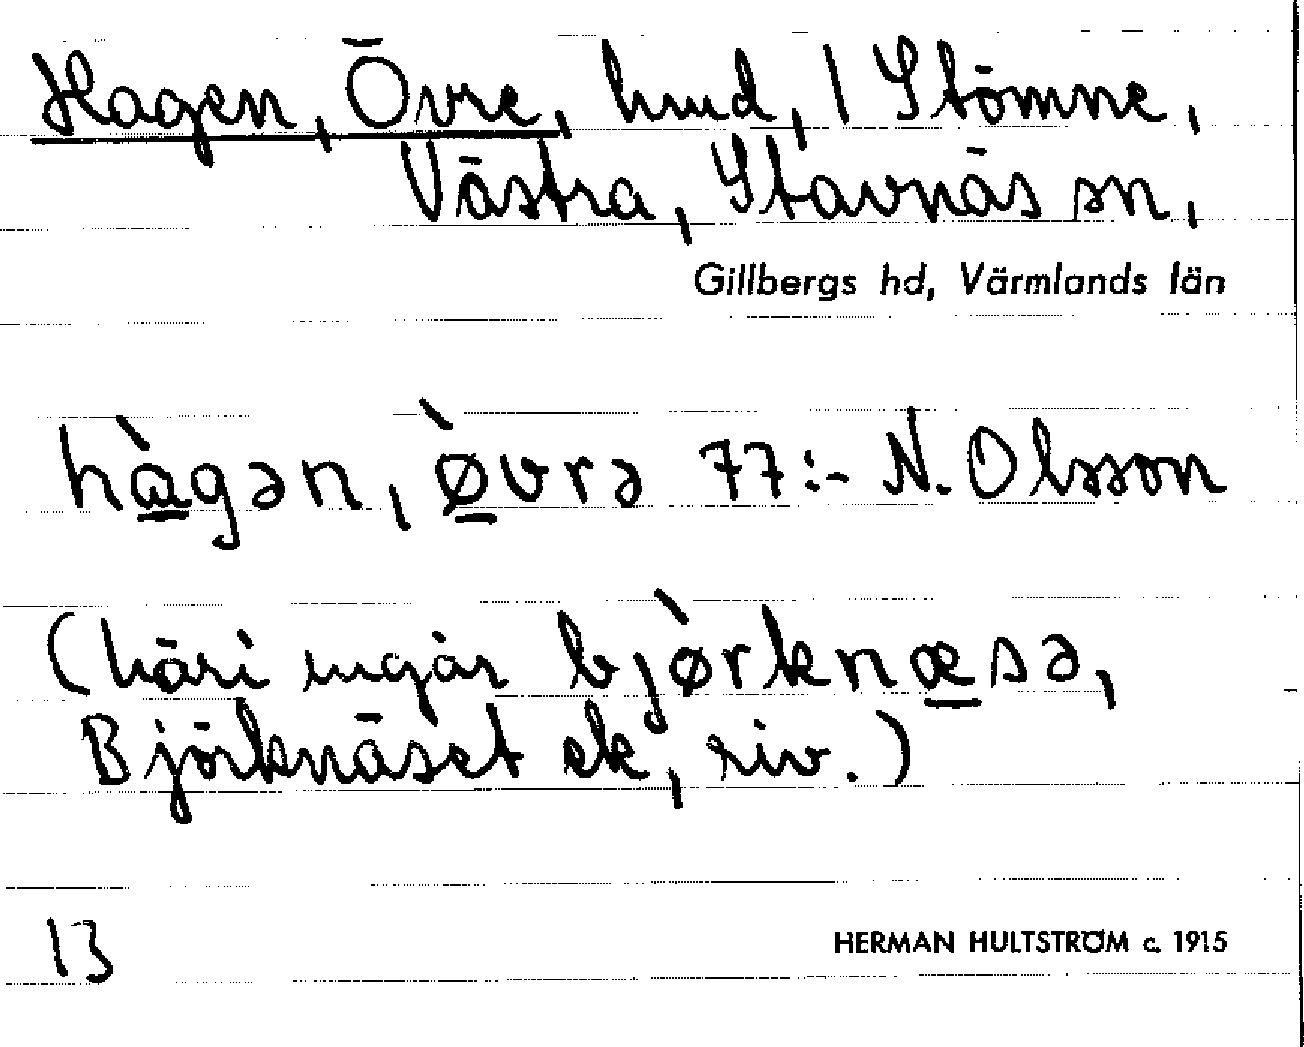 Hagen, Övre, hmd, 1 Stömne,
Västra, Stavnäs sn,
Gillbergs hd, Värmlands län
hàgən, ø̀vrə 77:- N. Olsson
(häri ingår bjø̀rknæsə,
Björknäset ek, riv.)
13
HERMAN HULTSTRÖM c. 1915